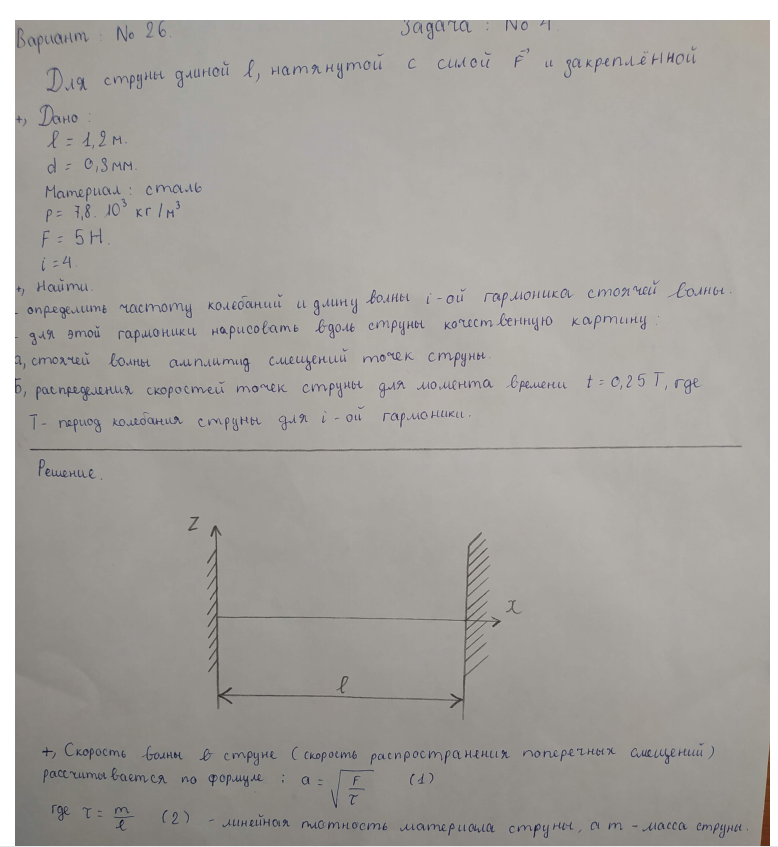 Вариант: No 26. Задача: No 4
Для струны длиной l, натянутой с силой F⃗ и закреплённой
+, Дано:
l = 1,2 м.
d = 0,3 мм.
Материал: сталь
ρ = 7,8 . 10³ кг/м³
F = 5 Н.
i = 4.
+, Найти.
- определить частоту колебаний и длину волны i-ой гармоника стоячей волны.
- для этой гармоники нарисовать вдоль струны качественную картину:
а, стоячей волны амплитид смещений точек струны.
Б, распределения скоростей точек струны для момента времени t = 0,25 T, где
T - период колебания струны для i-ой гармоники.
Решение.
Z
x
l
+, Скорость волны в струне (скорость распространения поперечных смещений)
рассчитывается по формуле: a = √(F/τ) (1)
где τ = m/l (2) - линейная плотность материала струны, а m - масса струны.